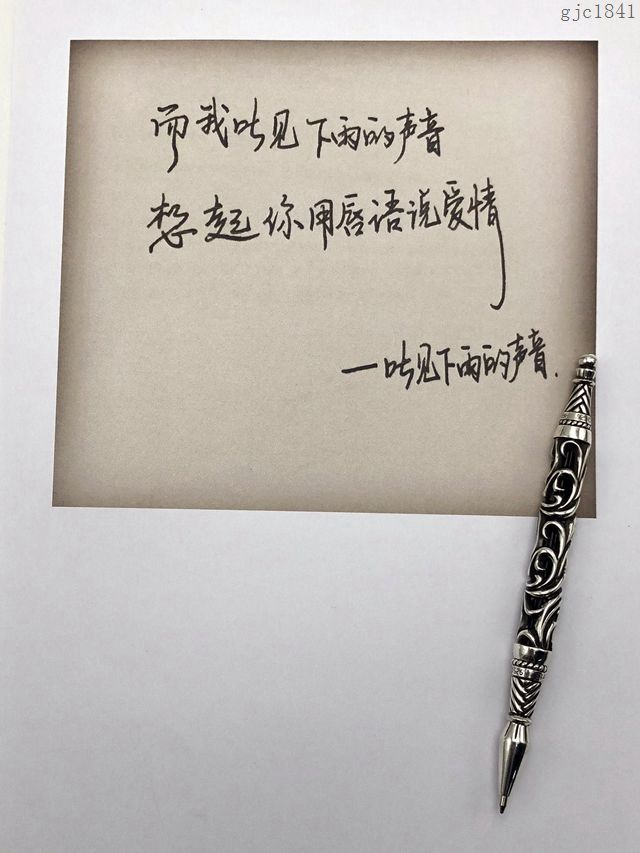 gjc1841
而我听见下雨的声音
想起你用唇语说爱情
一听见下雨的声音.